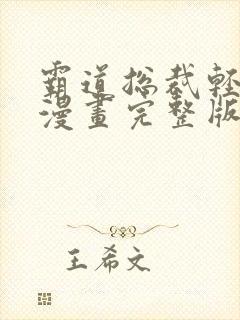 霸道總裁輕
漫畫完整版
王希文